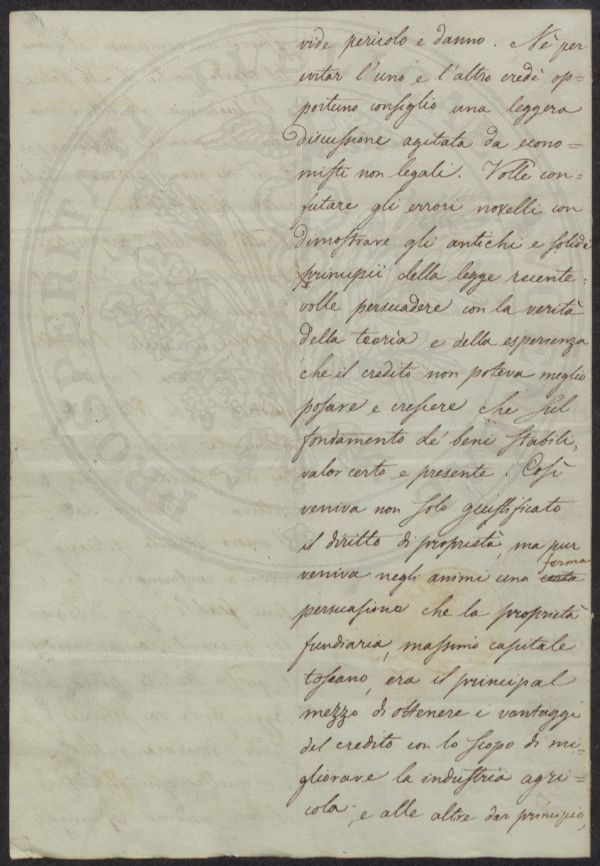 vide pericolo e danno. Nè per
evitar l'uno e l'altro credè op=
portuno consiglio una leggera
discussione agitata da econo=
misti non legali. Volle con=
futare gli errori novelli con
dimostrare gli antichi e solidi
principii della legge recente.
volle persuadere con la verità
della teoria e della esperienza
che il credito non poteva meglio
posare e crescere che sul
fondamento de' beni stabili,
valor certo e presente. Così
veniva non solo giustificato
il diritto di proprietà, ma pur
veniva negli animi una ferma
persuasione che la proprietà
fundiaria, massimo capitale
toscano, era il principal
mezzo di ottenere i vantaggi
del credito con lo scopo di mi=
gliorare la industria agri=
cola, e alle altre dar principio,
PROSPERITATI PUB